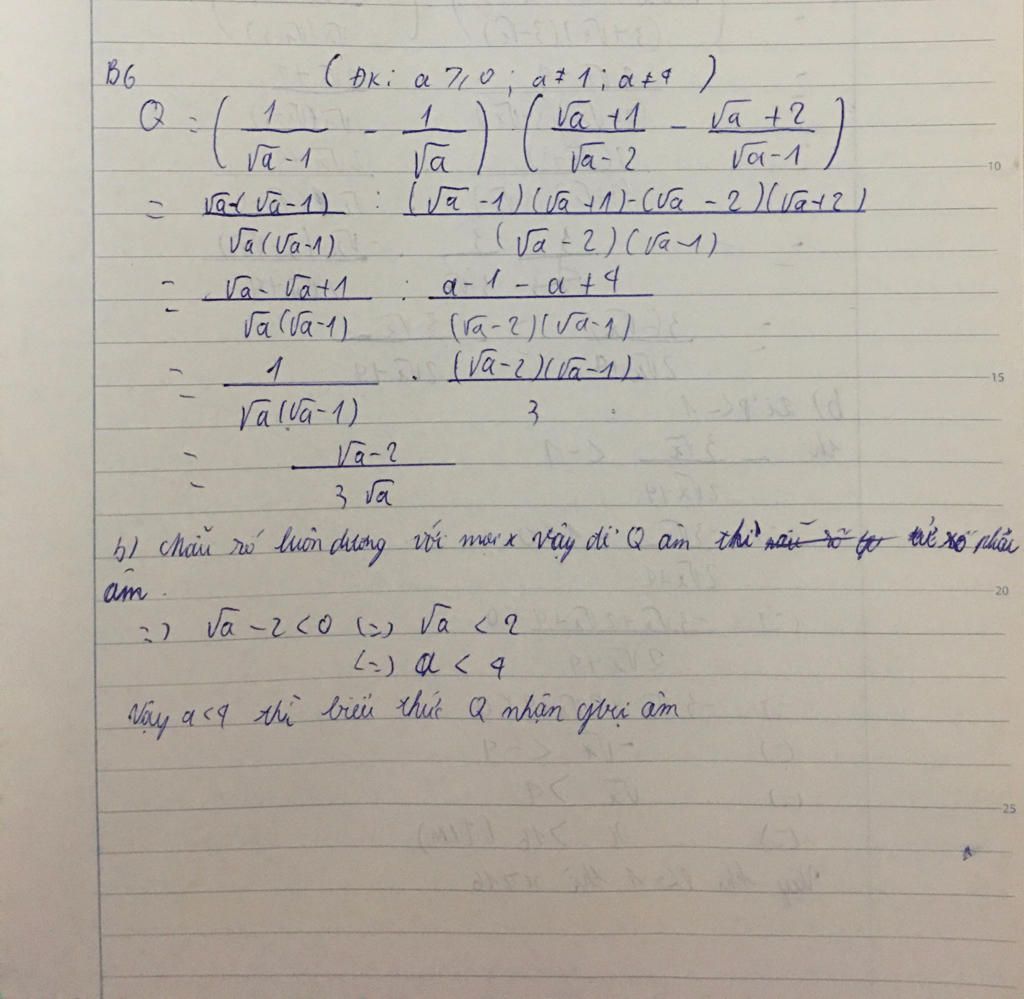 B6 ( ĐK: a ⩾ 0 ; a ≠ 1 ; a ≠ 4 )
Q = ( 1/(√a - 1) - 1/√a ) : ( (√a + 1)/(√a - 2) - (√a + 2)/(√a - 1) )
= (√a - (√a - 1))/(√a(√a - 1)) : ((√a - 1)(√a + 1) - (√a - 2)(√a + 2))/((√a - 2)(√a - 1))
= (√a - √a + 1)/(√a(√a - 1)) : (a - 1 - a + 4)/((√a - 2)(√a - 1))
= 1/(√a(√a - 1)) . ((√a - 2)(√a - 1))/3
= (√a - 2)/(3√a)
b) Mẫu số luôn dương với mọi x vậy để Q âm thì tử số phải
âm.
=) √a - 2 < 0 (=) √a < 2
(=) a < 4
Vậy a < 4 thì biểu thức Q nhận gtrị âm
10
15
20
25